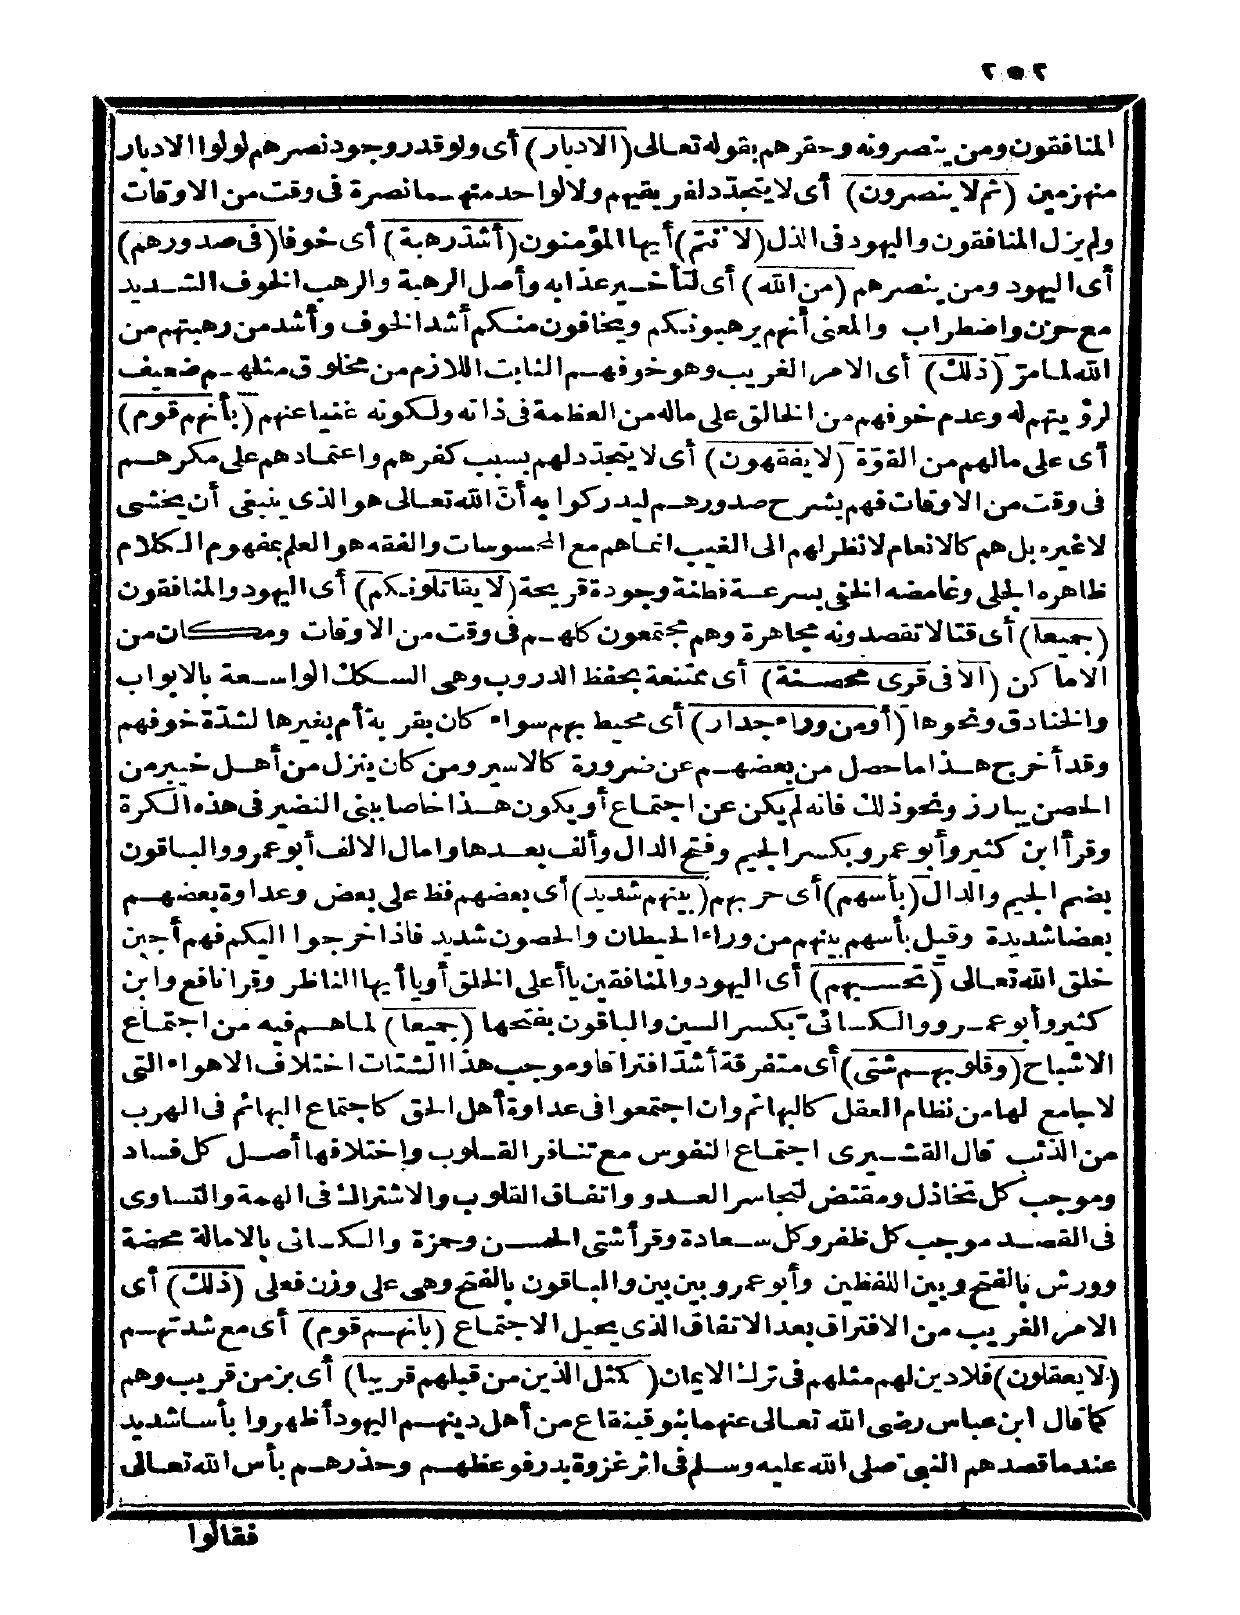 ٢٥٢
المنافقون ومن ينصرونه وحقرهم بقوله تعالى (الادبار) أى ولو قدر وجود نصرهم لولوا الادبار
منهزمين (ثم لا ينصرون) أى لا يتجدّد لفريقيهم ولا لواحد منهـما نصرة فى وقت من الاوقات
ولم يزل المنافقون واليهود فى الذل (لا نتم) أيها المؤمنون (أشدّ رهبة) أى خوفا (فى صدورهم)
أى اليهود ومن ينصرهم (من الله) أى لتأخير عذابه وأصل الرهبة والرهب الخوف الشـديد
مع حزن واضطراب والمعنى أنهم يرهبونكم ويخافون منكم أشد الخوف وأشد من رهبتهم من
الله لما مرّ (ذلك) أى الامر الغريب وهو خوفهـم الثابت اللازم من مخلوق مثلهـم ضعيف
لرؤيتهم له وعدم خوفهم من الخالق على ماله من العظمة فى ذاته ولكونه غنيا عنهم (بأنهم قوم)
أى على مالهم من القوّة (لا يفقهون) أى لا يتجدّد لهم بسبب كفرهم واعتمادهم على مكرهـم
فى وقت من الاوقات فهم يشرح صدورهـم ليدركوا به أنّ الله تعالى هو الذى ينبغى أن يخشى
لا غيره بل هم كالانعام لا نظر لهم الى الغيب انماهم مع المحسوسات والفقه هو العلم بمفهوم الكلام
ظاهره الجلى وغامضه الخفى بسرعـة فطنة وجودة قريحة (لا يقاتلونكم) أى اليهود والمنافقون
(جميعا) أى قتالا تقصدونه مجاهرة وهم مجتمعون كلهـم فى وقت من الاوقات ومكان من
الاماكن (الا فى قرى محصـنة) أى ممتنعة بحفظ الدروب وهى السكك الواسعة بالابواب
والخنادق ونحوها (أو من وراء جدار) أى محيط بهم سواء كان بقرية أم بغيرها لشدّة خوفهم
وقد أخرج هـذا ما حصل من بعضهـم عن ضرورة كالاسير ومن كان ينزل من أهـل خيبر من
الحصن يبارز ونحو ذلك فانه لم يكن عن اجتماع أو يكون هـذا خاصا ببنى النضير فى هذه الكرة
وقرأ ابن كثير وأبو عمرو بكسر الجيم وفتح الدال وألف بعـدها وامال الالف أبو عمرو والباقون
بضم الجيم والدال (بأسهم) أى حربهم (بينهم شديد) أى بعضهم فظ على بعض وعداوة بعضهـم
بعضا شديدة وقيل بأسهم بينهم من وراء الحيطان والحصون شديد فاذا خرجوا اليكم فهم أجبن
خلق الله تعالى (تحسبهم) أى اليهود والمنافقين يا أعلى الخلق أو يا أيها الناظر وقرا نافع وابن
كثير وأبو عمـرو والكسائى بكسر السين والباقون بفتحها (جميعا) لما هـم فيه من اجتماع
الاشباح (وقلوبهـم شتى) أى متفرقة أشدّ افتراقا وموجب هذا الشتات اختلاف الاهواء التى
لا جامع لها من نظام العقل كالبهائم وان اجتمعوا فى عداوة أهل الحق كاجتماع البهائم فى الهرب
من الذئب قال القشـيرى اجتماع النفوس مع تنافر القـلوب واختلافها أصـل كل فساد
وموجب كل تخاذل ومقتض لتجاسر العـدو واتفاق القلوب والاشتراك فى الهمة والتساوى
فى القصـد موجب كل ظفر وكل سـعادة وقرأ شتى الحسـن وحمزة والكسائى بالامالة محضة
وورش بالفتح وبين اللفظين وأبو عمرو بين بين والباقون بالفتح وهى على وزن فعلى (ذلك) أى
الامر الغريب من الافتراق بعد الاتفاق الذى يخيل الاجتماع (بأنهـم قوم) أى مع شدتهـم
(لا يعقلون) فلا دين لهم مثلهم فى ترك الايمان (كمثل الذين من قبلهم قريبا) أى بزمن قريب وهم
كما قال ابن عباس رضى الله تعالى عنهما بنو قينقاع من أهل دينهـم اليهود أظهروا بأسا شديد
عند ما قصدهم النبىّ صلى الله عليه وسـلم فى اثر غزوة بدر فوعظهـم وحذرهـم بأس الله تعالى
فقالوا